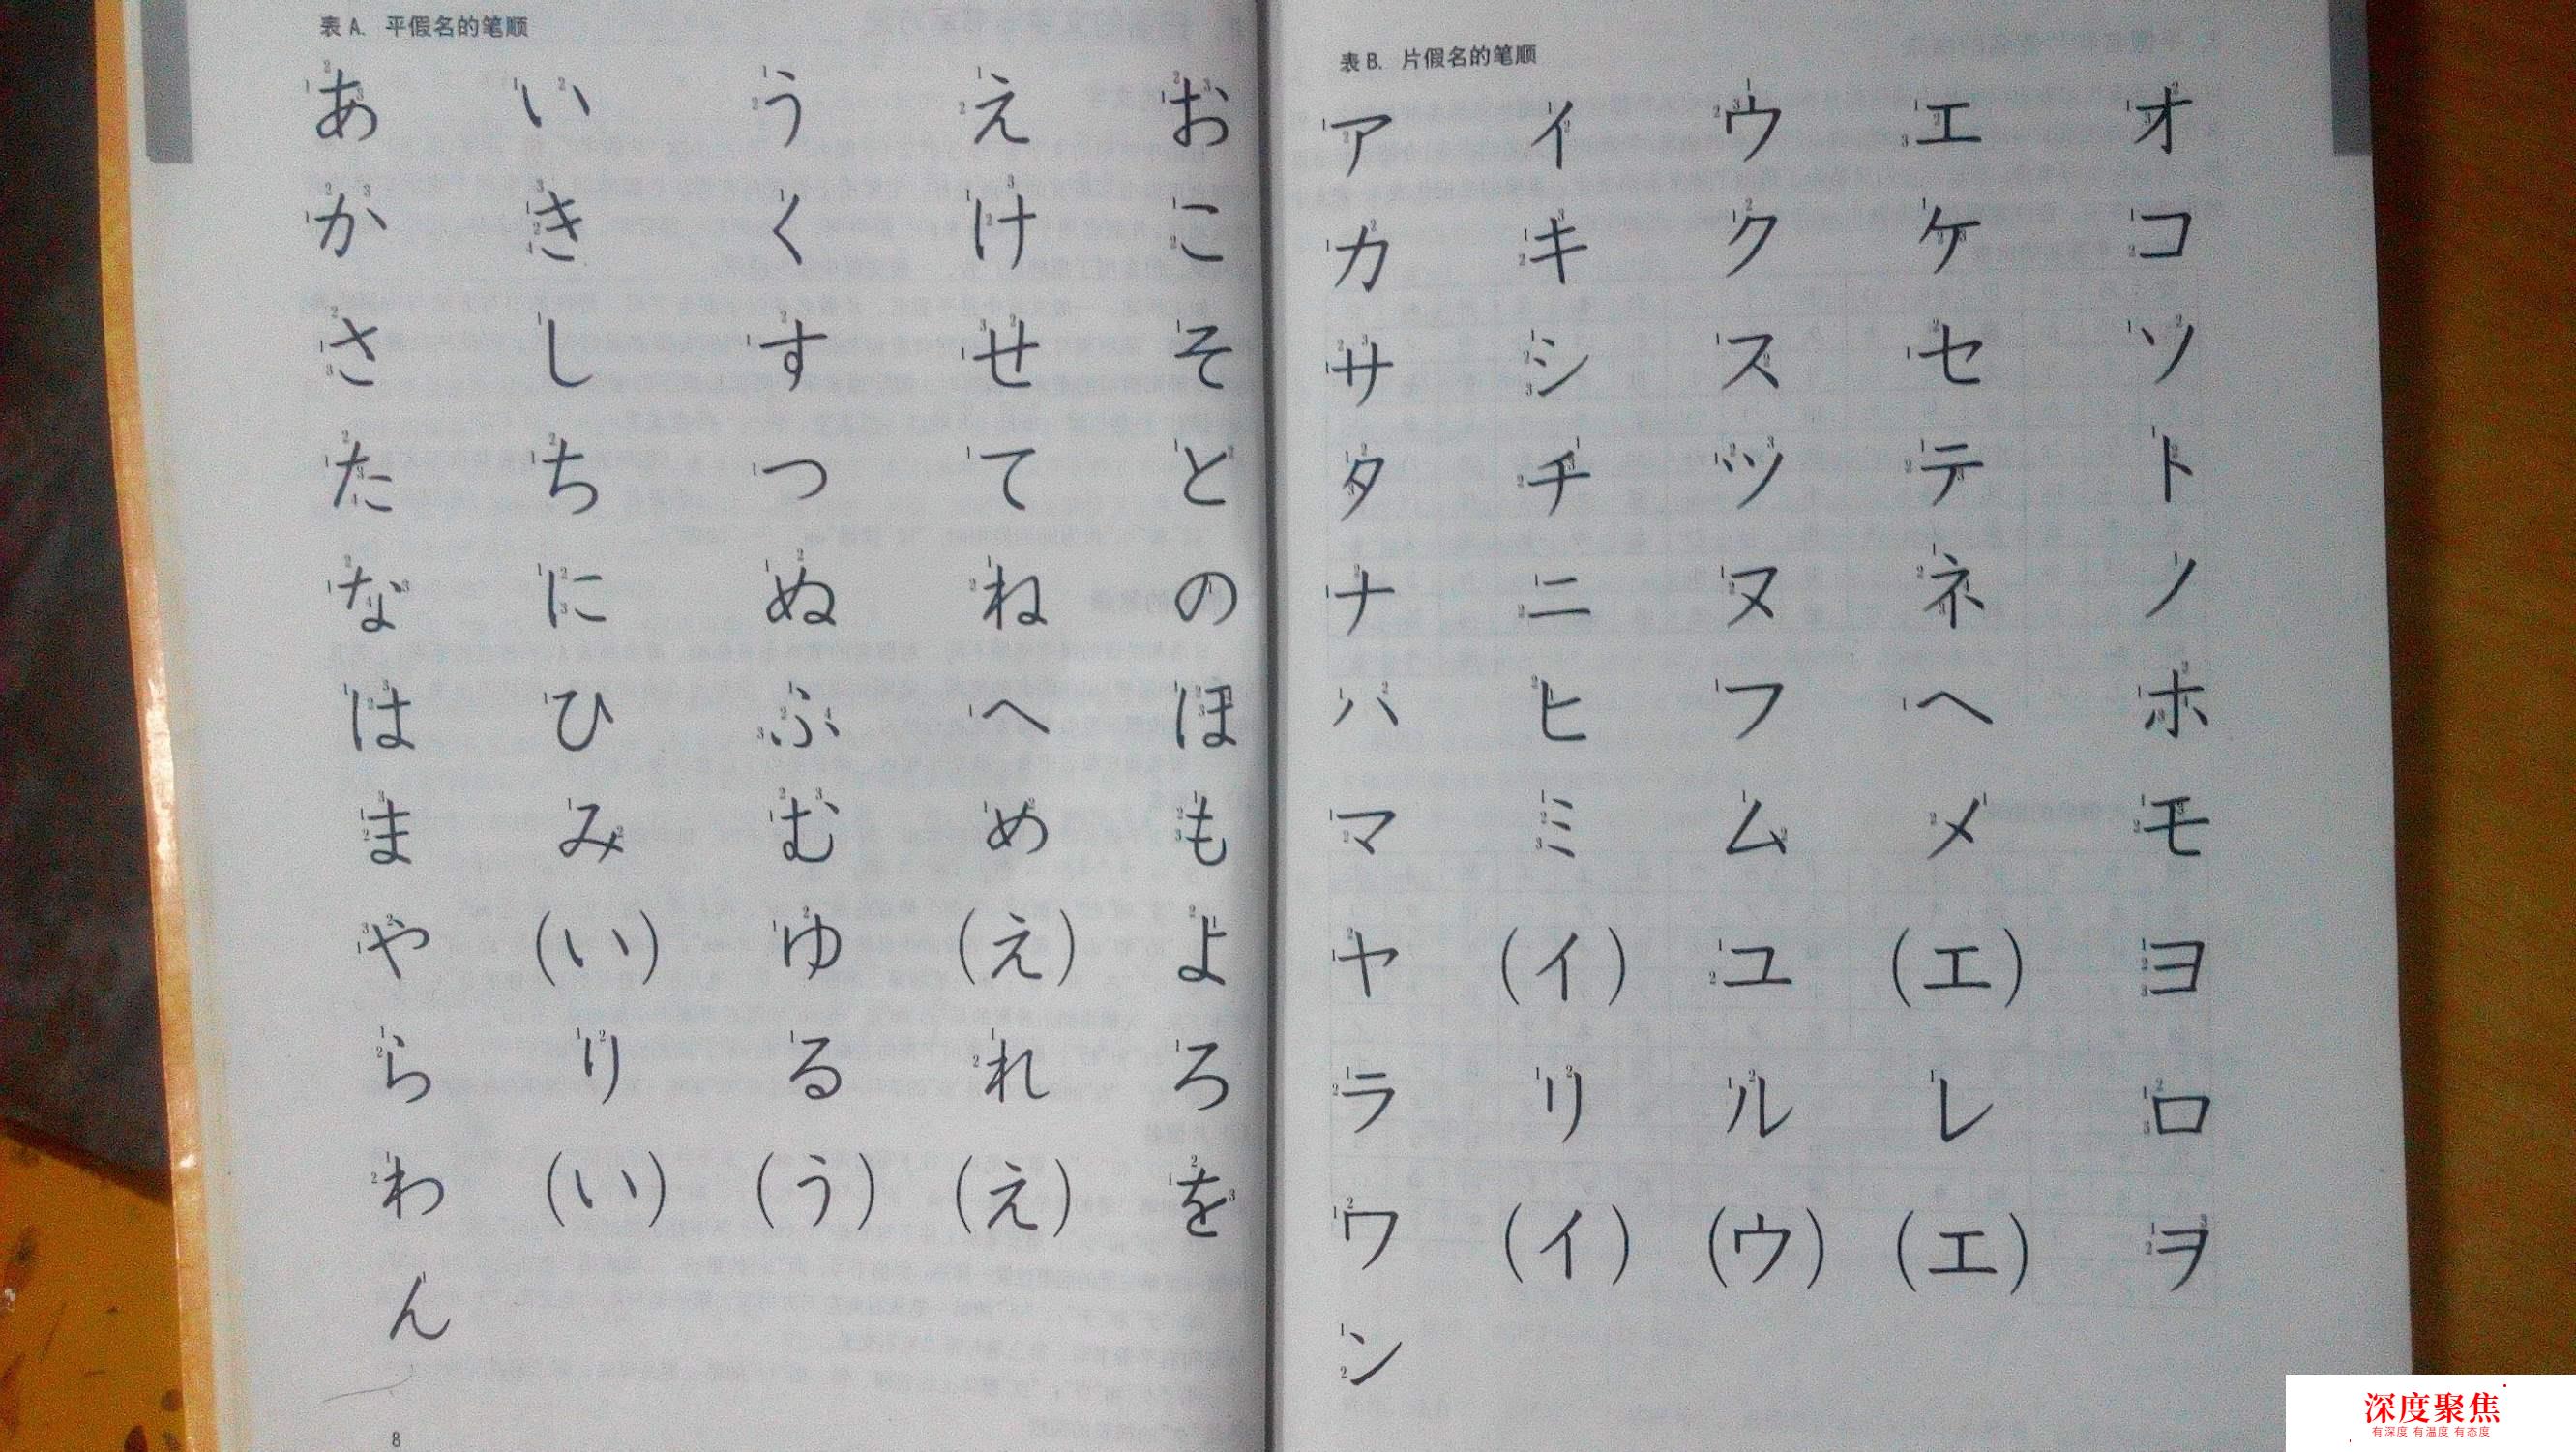 表 A. 平假名的笔顺
あ い う え お
か き く け こ
さ し す せ そ
た ち つ て と
な に ぬ ね の
は ひ ふ へ ほ
ま み む め も
や (い) ゆ (え) よ
ら り る れ ろ
わ (い) (う) (え) を
ん
8
表 B. 片假名的笔顺
ア イ ウ エ オ
カ キ ク ケ コ
サ シ ス セ ソ
タ チ ツ テ ト
ナ ニ ヌ ネ ノ
ハ ヒ フ ヘ ホ
マ ミ ム メ モ
ヤ (イ) ユ (エ) ヨ
ラ リ ル レ ロ
ワ (イ) (ウ) (エ) ヲ
ン
深度聚焦
有深度 有温度 有态度